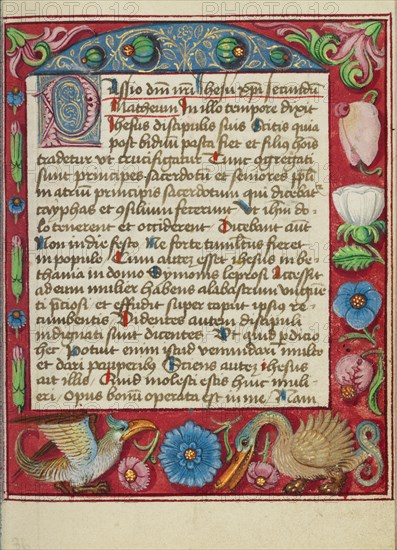 Passio dm̄ nrī Jhesu xp̄i secundū
Matheum. In illo tempore dixit
Jhesus discipulis suis Scitis quia
post biduum pasca fiet et filius hoīs
tradetur vt crucifigatur Tunc aggregati
sunt principes sacerdotū et seniores pp̄li
in atriū principis sacerdotum qui dicebatr
cayphas et ꝯsilium fecerunt Vt ihm̄ do-
lo tenerent et occiderent Dicebant aūt
Non in die festo Ne forte tumultus fieret
in populo Cum autez esset ihesus in be-
thania in domo Symonis leprosi Accessit
ad eum mulier habens alabastrum unguēti
p̄ciosi et effudit super caput ipsius re-
cumbentis Videntes autem discipuli
indignati sunt dicentes Vt quid p̄dicio
hec Potuit enim istud venundari multo
et dari pauperibꝰ Sciens autez ihesus
ait illis Quid molesti estis huic muli-
eri Opus bonū operata est in me Nam